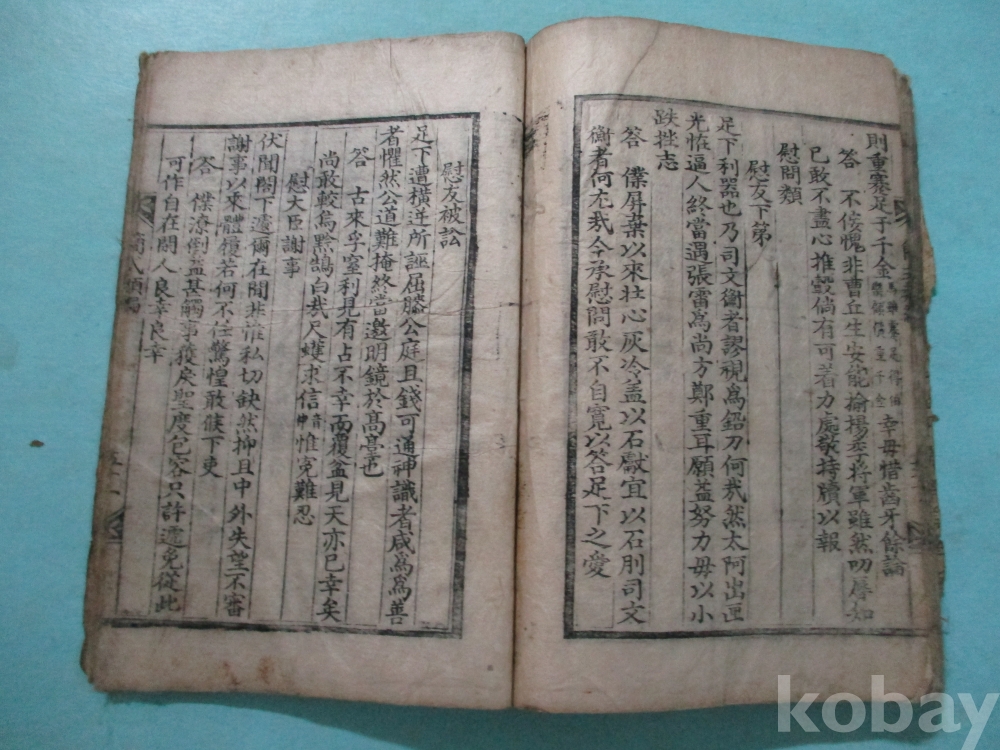 則重寡足于千金 幸毋惜齒牙餘論
答 不佞愧非曹丘生安能揄揚李將軍雖然叨辱知
己敢不盡心推轂倘有可著力處敬持牘以報
慰問類
慰友下第
足下利器也乃司文衡者謬視爲鉛刀何㢤然太阿出匣
光恠逼人終當遇張雷爲尚方鄭重耳願益努力毋以小
跌挫志
答 僕屏棄以來壮心灰冷盖以石獻宜以石刖司文
衡者何尤㢤今承慰問敢不自寛以答足下之愛
慰友被訟
足下遭橫逆所誣屈膝公庭且錢可通神識者咸爲爲善
者懼然公道難掩終當邀明鏡於髙臺也
答 古來孚窒利見有占不幸而覆盆見天亦已幸矣
尚敢較烏黔鵠白㢤尺蠖求信音伸惟寃難忍
慰大臣謝事
伏聞閣下遽爾在閒非惟私切缺然抑且中外失望不審
謝事以來體履若何不任驚惶敢候下吏
答 僕潦倒益甚觸事獲戾聖度包容只許遞免從此
可作自在閒人良幸良幸
kobay